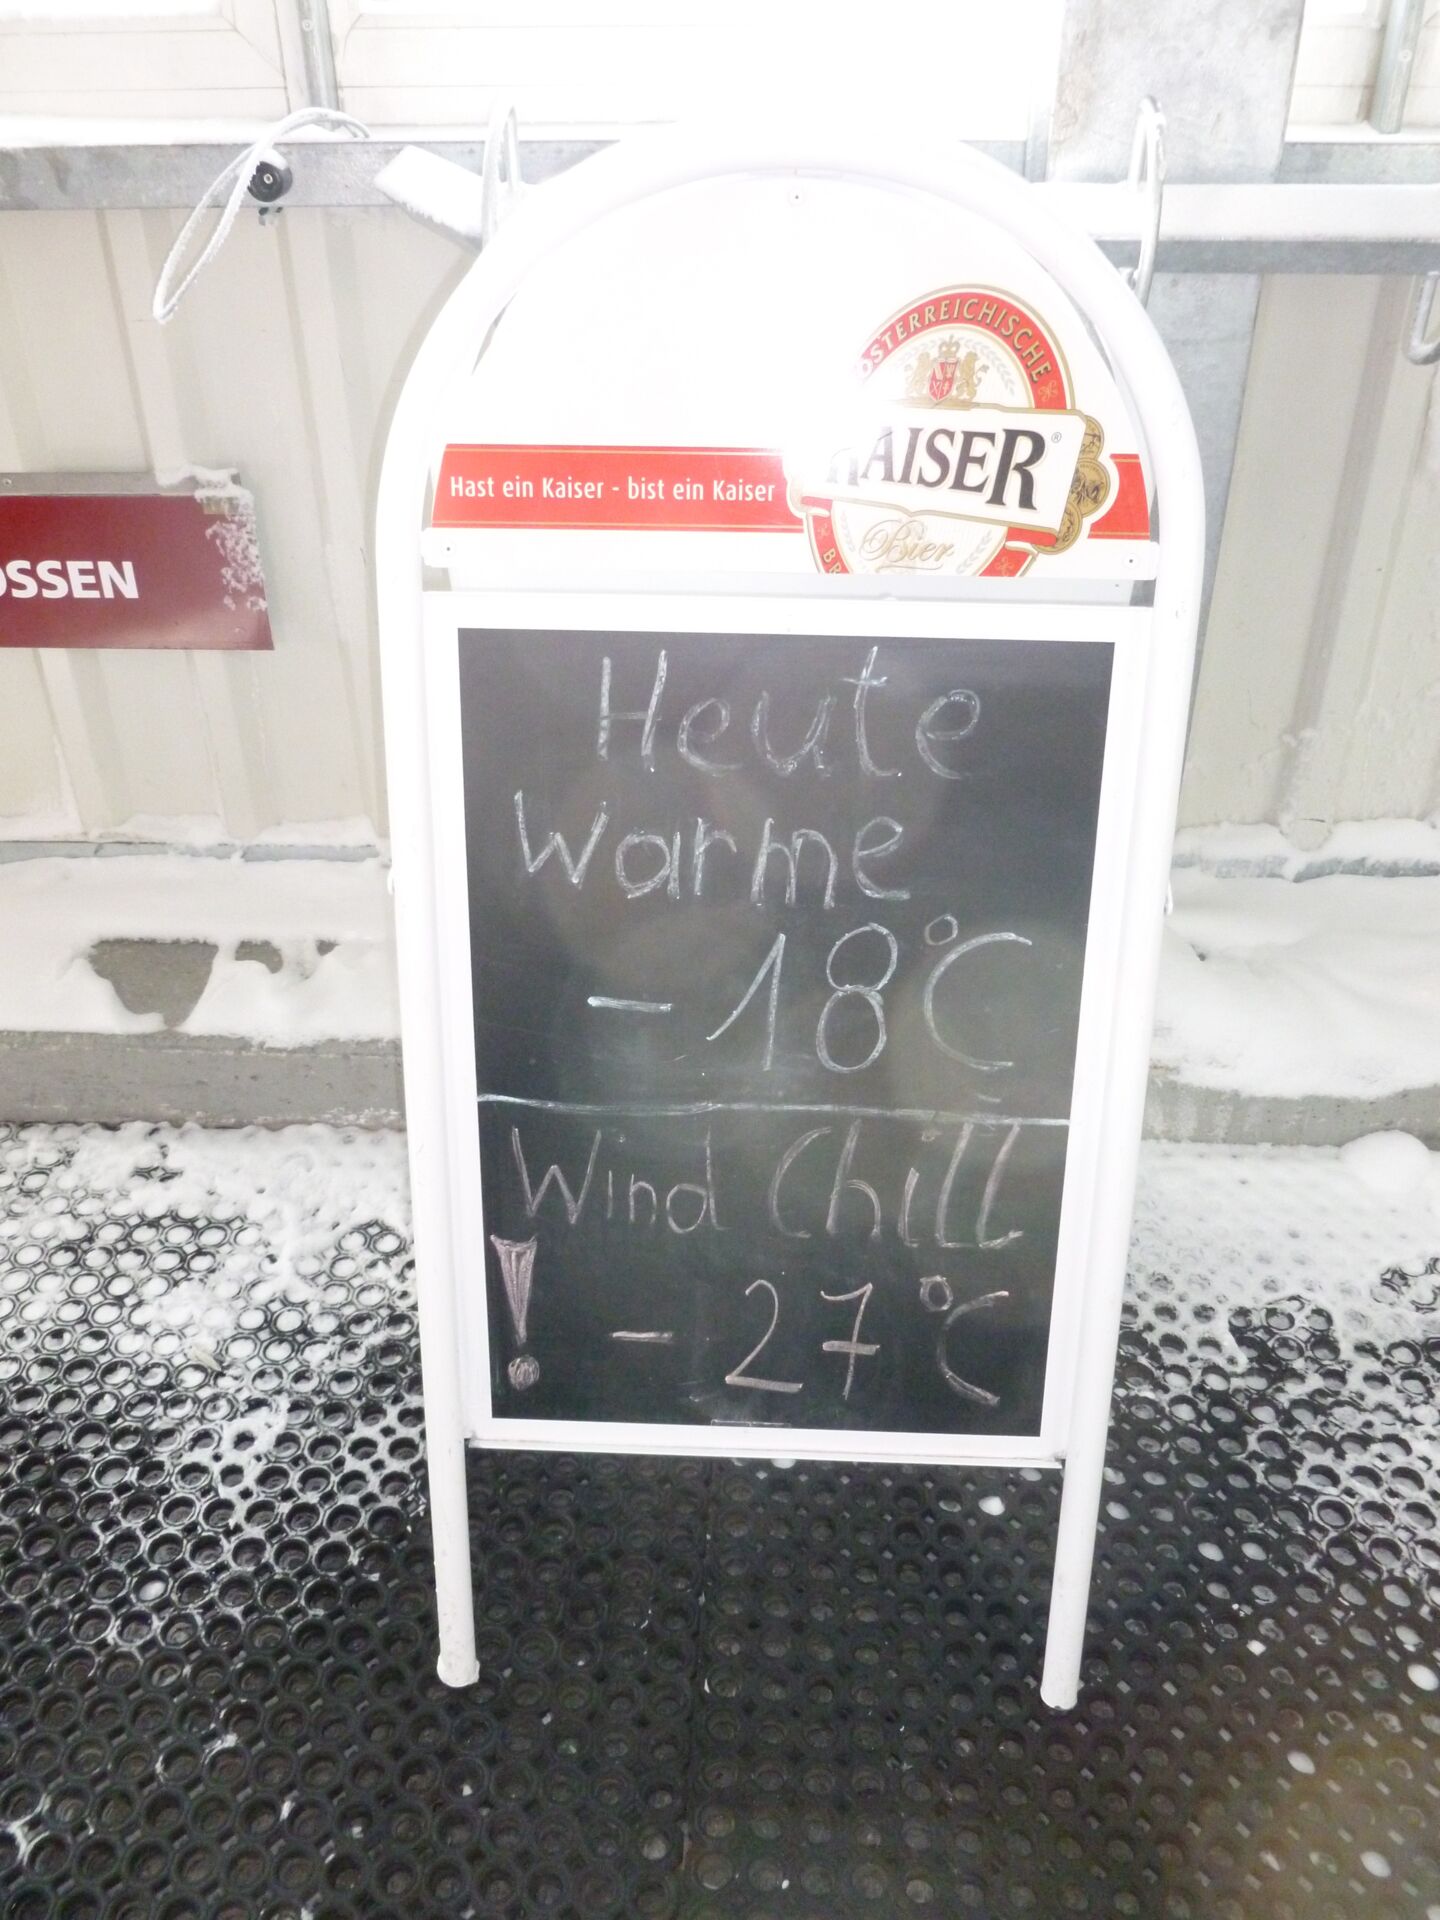 ÖSTERREICHISCHE
KAISER®
Hast ein Kaiser - bist ein Kaiser
Bier
OSSEN
Heute
warme
- 18°C
Wind Chill
! - 27°C